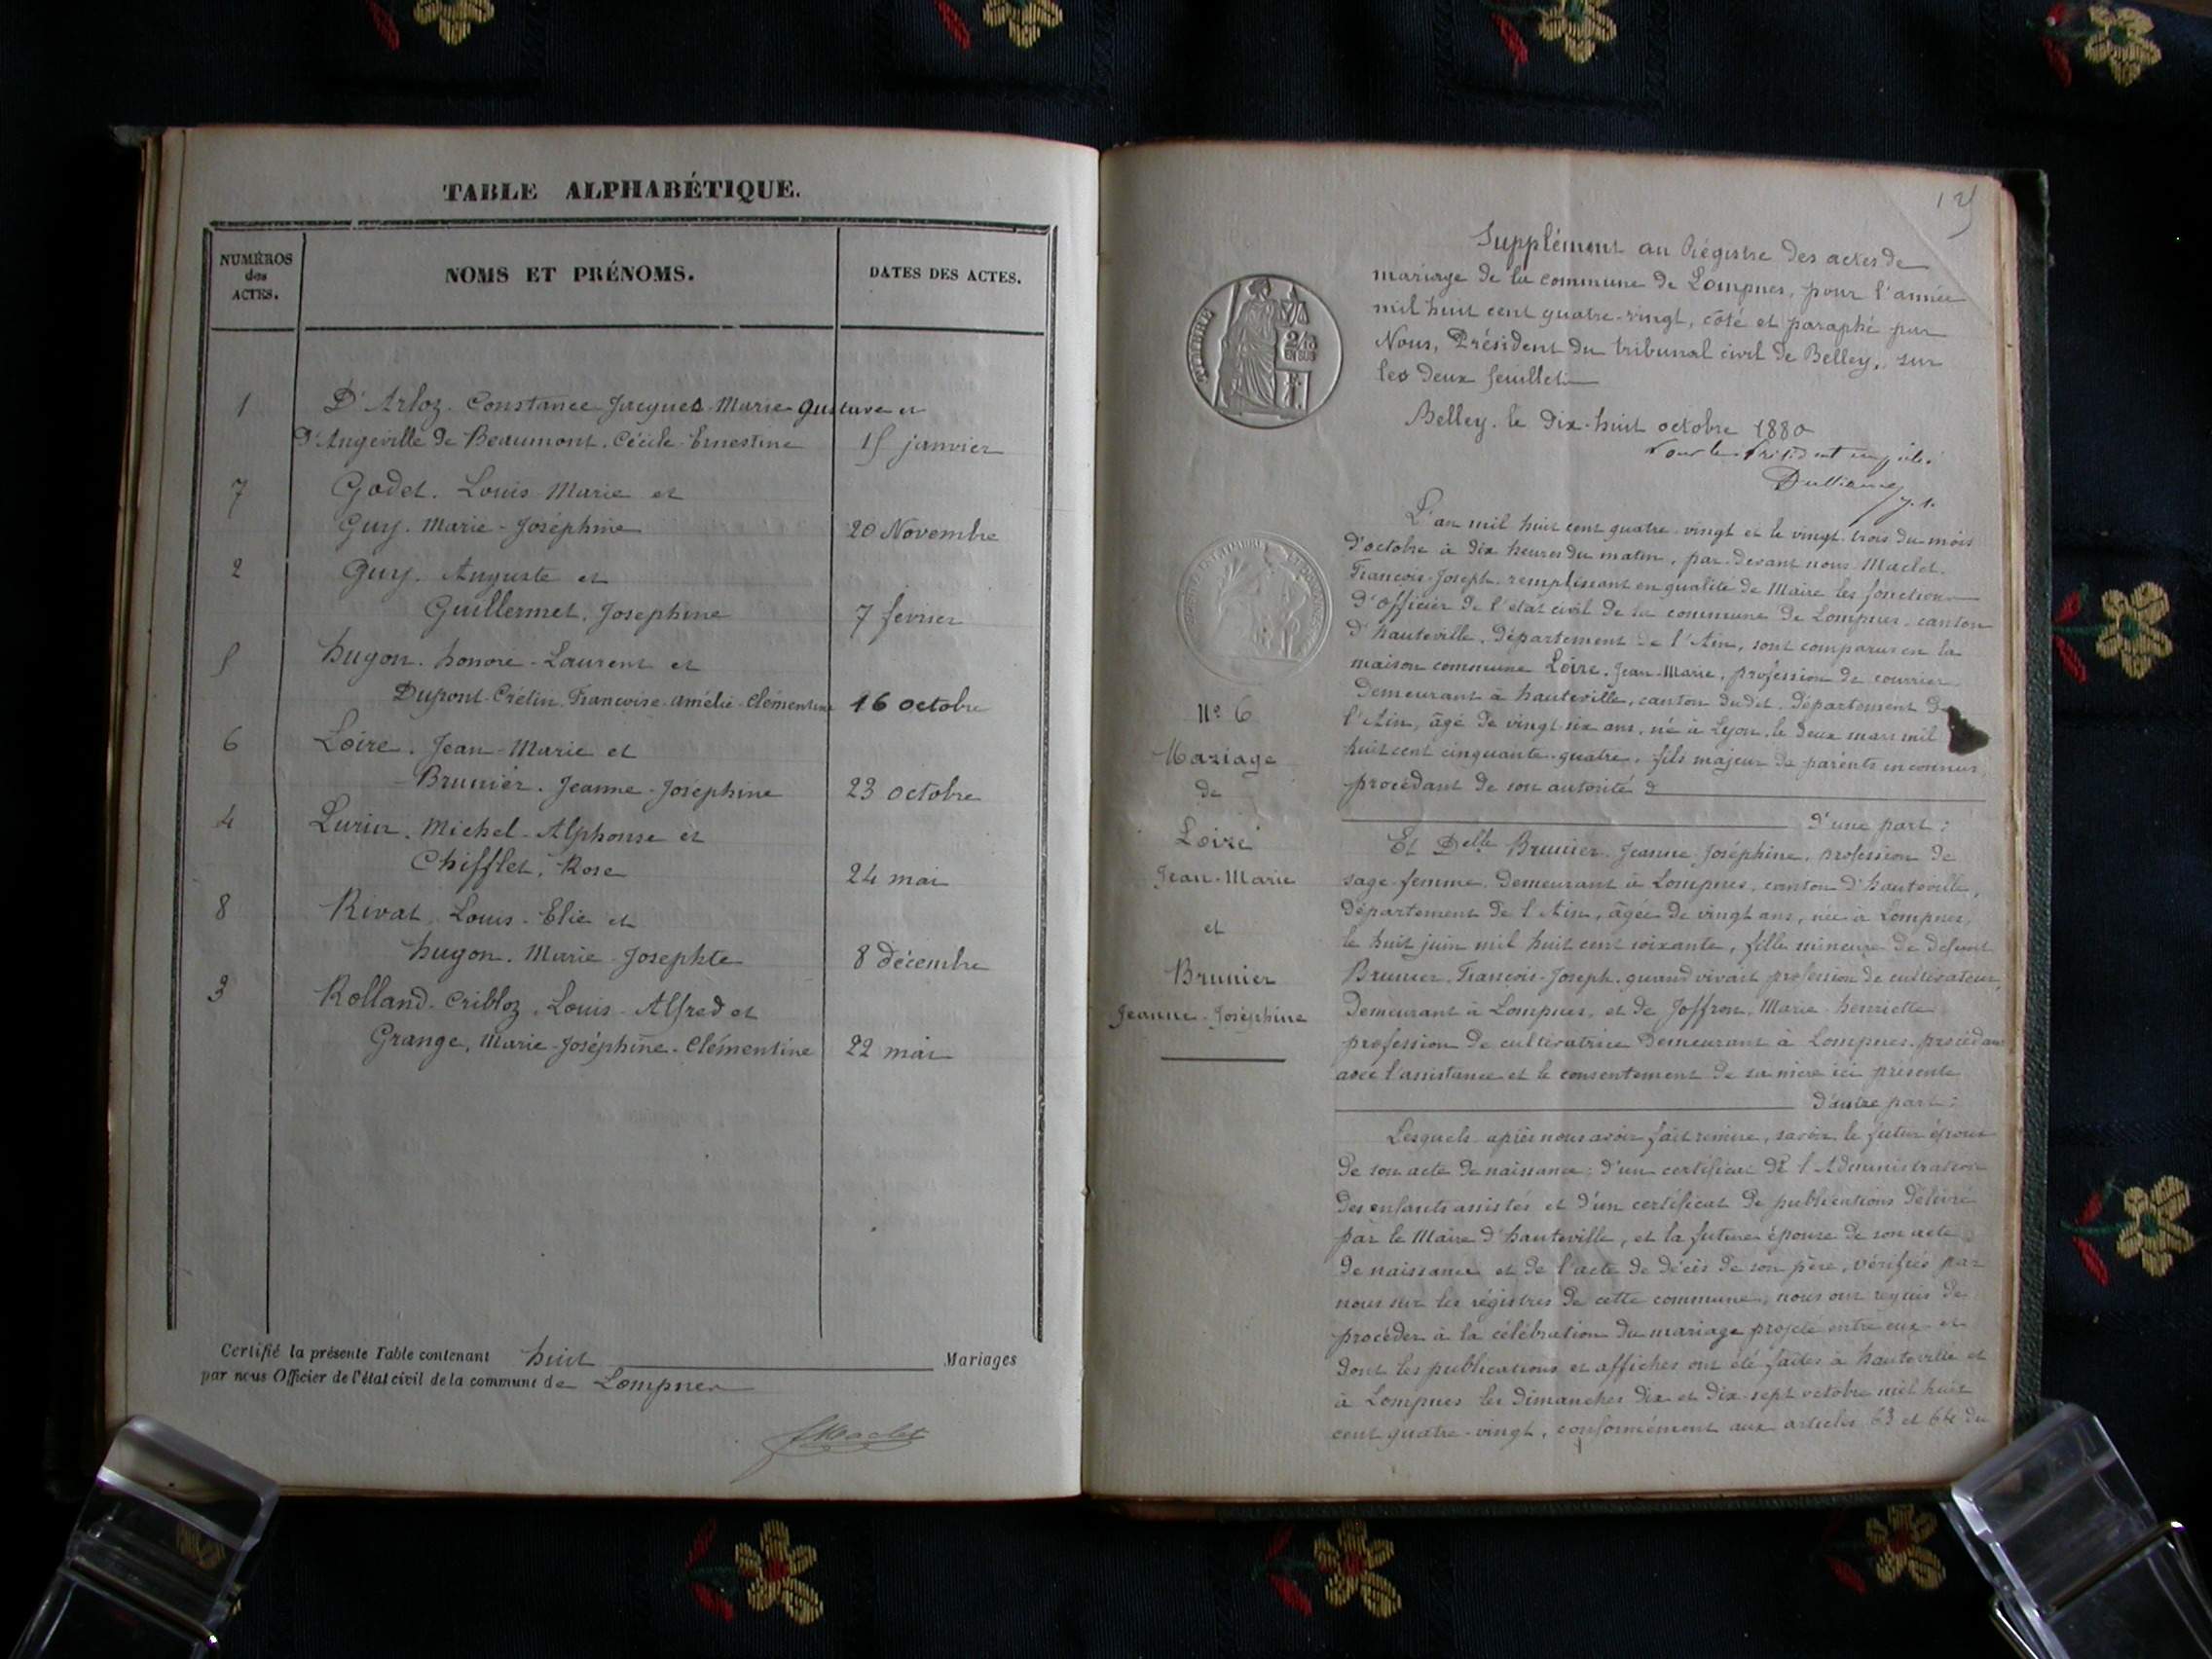 TABLE ALPHABÉTIQUE.
NUMÉROS
des
ACTES.
NOMS ET PRÉNOMS.
DATES DES ACTES.
1 D'Arloz. Constance-Jacques-Marie-Gustave et
D'Angeville de Beaumont. Cécile-Ernestine 15 janvier
7 Godet. Louis-Marie et
Guy. Marie-Joséphine 20 Novembre
2 Guy. Auguste et
Guillermet. Josephine 7 fevrier
5 hugon. honoré-Laurent et
Dupont-Crétin. Francoise-amélie-Clémentine 16 octobre
6 Loire. Jean-Marie et
Brunier. Jeanne-Joséphine 23 octobre
4 Michel-Alphonse et
Chifflet. Rose 24 mai
8 Rivat. Louis-Elie et
hugon. Marie-Josephte 8 décembre
3 Rolland-Cribloz. Louis-Alfred et
Grange, Marie-Joséphine-Clémentine 22 mai
Certifié la présente Table contenant huit Mariages
par nous Officier de l'état civil de la commune de Lompnes
FMaclet
Supplément au Régistre des actes de
mariage de la commune de Lompnes, pour l'année
mil huit cent quatre-vingt, côté et paraphé par
Nous, Président du tribunal civil de Belley, sur
les deux feuillets
Belley. le dix-huit octobre 1880
Pour le Président empêché
TIMBRE
2/10
EN SUS
L'an mil huit cent quatre-vingt et le vingt-trois du mois
d'octobre à dix heures du matin, par-devant nous Maclet.
Francois-Joseph. remplissant en qualité de Maire les fonctions
d'officier de l'état civil de la commune de Lompnes. canton
d'hauteville, département de l'Ain, sont comparus en la
maison commune Loire. Jean-Marie, profession de courrier
demeurant à hauteville, canton dudit, département de
l'Ain, âgé de vingt-six ans, né à Lyon, le deux mars mil
huit cent cinquante-quatre, fils majeur de parents inconnus,
procédant de son autorité
d'une part;
Nº 6
Mariage
de
Loire
Jean-Marie
et
Brunier
Jeanne-Joséphine
Et Delle Brunier. Jeanne-Joséphine, profession de
sage-femme, demeurant à Lompnes, canton d'hauteville,
département de l'Ain, âgée de vingt ans, née à Lompnes,
le huit juin mil huit cent soixante, fille mineure de défunt
Brunier. Francois-Joseph. quand vivait profession de cultivateur,
demeurant à Lompnes, et de Joffron. Marie-henriette
profession de cultivatrice demeurant à Lompnes. procédant
avec l'assistance et le consentement de sa mère ici présente
d'autre part:
Lesquels après nous avoir fait remise, savoir, le futur époux
de son acte de naissance; d'un certificat de l'Administration
des enfants assistés et d'un certificat de publications délivré
par le Maire d'hauteville, et la future épouse de son acte
de naissance et de l'acte de décès de son père, vérifiés par
nous sur les régistres de cette commune, nous ont requis de
procéder à la célébration du mariage projeté entre eux et
dont les publications et affiches ont été faites à hauteville et
à Lompnes les dimanches dix et dix-sept octobre mil huit
cent quatre-vingt, conformément aux articles 63 et 64 du